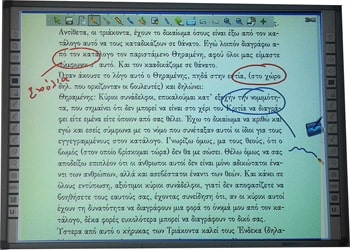 Αντίθετα, οι τριάκοντα, έχουν το δικαίωμα όσους είναι έξω από τον κα-
τάλογο αυτό να τους καταδικάζουν σε θάνατο. Εγώ λοιπόν διαγράφω α-
πό τον κατάλογο τον παριστάμενο Θηραμένη, αφού όλοι μας είμαστε
σύμφωνοι αυτό. Και τον καταδικάζομε σε θάνατο.
Όταν άκουσε το λόγο αυτό ο Θηραμένης, πηδά στην εστία, (στο χώρο
δηλ. που ορκίζονταν οι βουλευτές) και δηλώνει:
Θηραμένης: Κύριοι συνάδελφοι, επικαλούμαι κατ' εξοχήν την νομιμότη-
τα, που σημαίνει ότι δεν μπορεί να είναι στο χέρι του Κριτία να διαγρά-
φει είτε εμένα είτε όποιον από σας θέλει. Έχω το δικαίωμα να κριθώ και
εγώ και εσείς σύμφωνα με το νόμο που συνέταξαν αυτοί οι ίδιοι για τους
εγγεγραμμένους στον κατάλογο. Γνωρίζω όμως, μα τους θεούς, ότι ο
βωμός (στον οποίο βρίσκομαι τώρα) δεν θα με σώσει. Θέλω όμως να σας
αποδείξω επιπλέον ότι οι άνθρωποι αυτοί δεν είναι μόνο αδικώτατοι ένα-
ντι των ανθρώπων, αλλά και ασεβέστατοι έναντι των θεών. Και κάνει σε
όλους εντύπωση, αξιότιμοι κύριοι συνάδελφοι, γιατί δεν αποφασίζετε να
βοηθήσετε τους εαυτούς σας, έχοντας συνείδηση ότι, αν οι κύριοι αυτοί
έχουν τη δυνατότητα να διαγράψουν μια φορά το όνομά μου από τον κα-
τάλογο, δέκα φορές ευκολότερα μπορεί να διαγράψουν το δικό σας.
Ύστερα από αυτό ο κήρυκας των Τριάκοντα καλεί τους Ένδεκα (δηλα-
Σχόλια